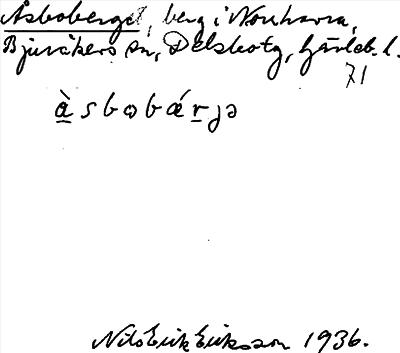 Åsboberget, berg i Norrhavra,
Bjuråkers sn, Delsbotg, Gävleb. l.
71
àsbobárjə
Nils Erik Eriksson 1936.